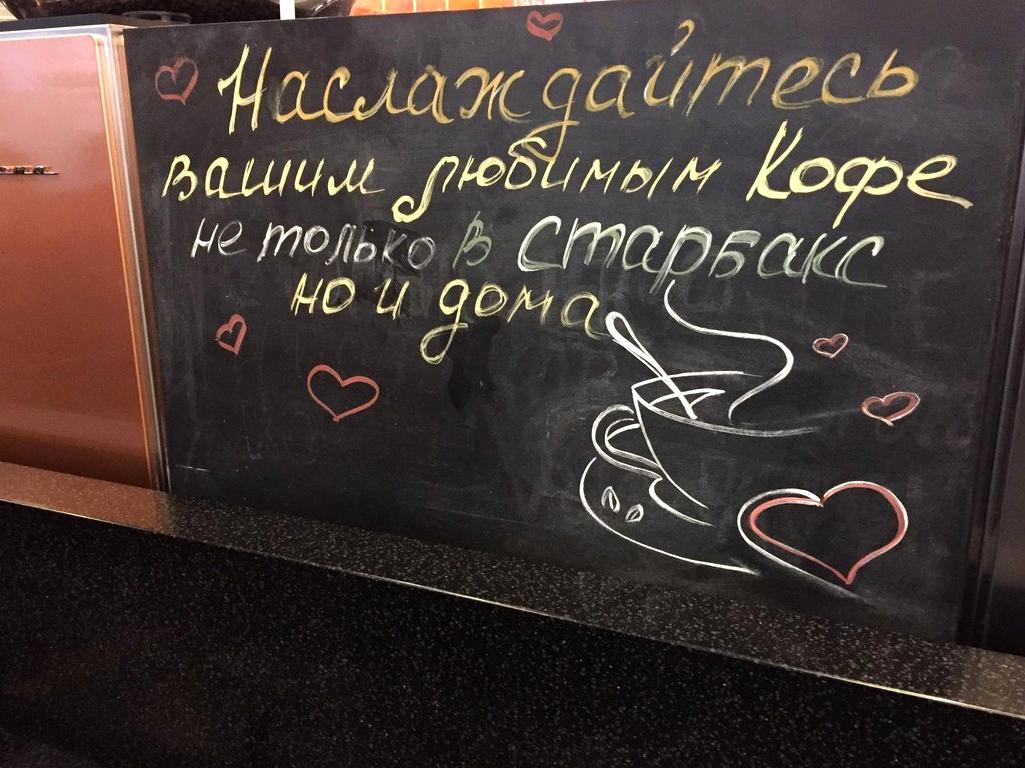 Наслаждайтесь
вашим любимым Кофе
не только в Старбакс
но и дома